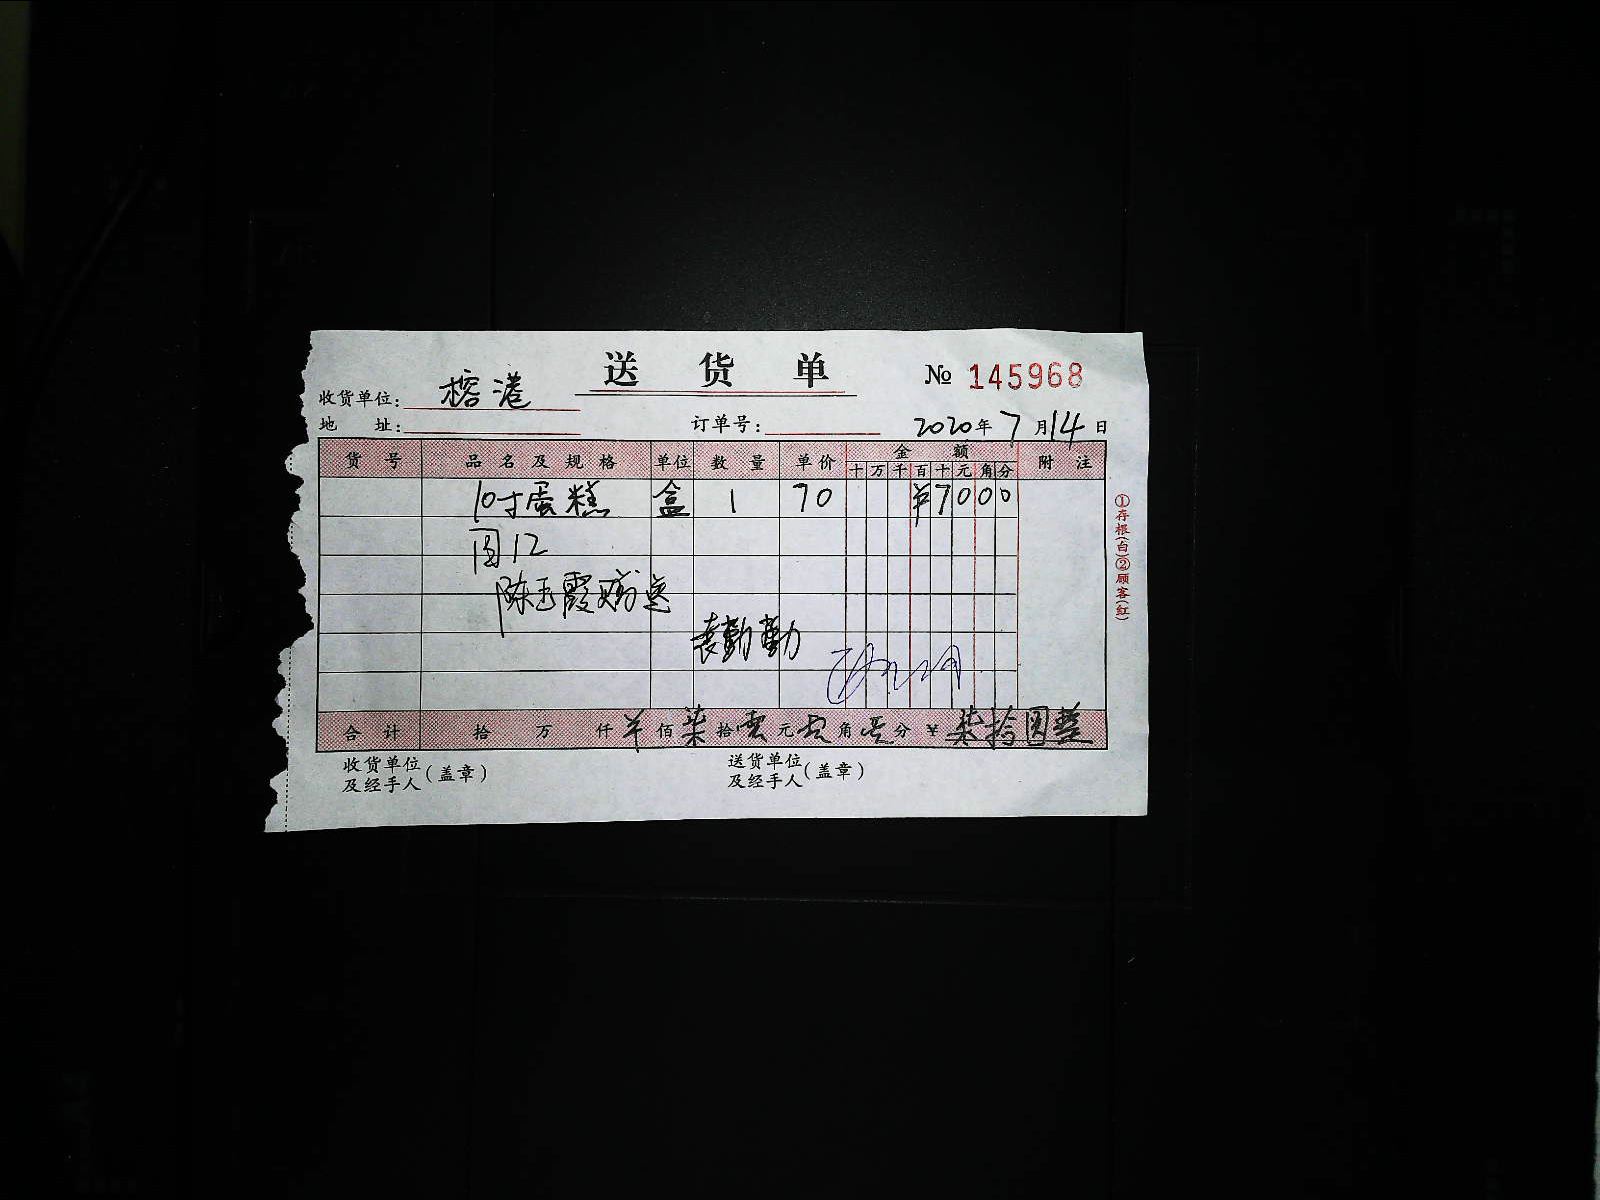 送货单 № 145968
收货单位: 榕港
地址: 订单号: 2020年7月14日
货号 品名及规格 单位 数量 单价 金额 附注
十万千百十元角分
10寸蛋糕 盒 1 70 ¥7000
陈玉霞赠送
袁勤勤
合计 拾 万 仟 ¥ 佰 柒 拾 零 元 零 角 零 分 ¥ 柒拾圆整
收货单位及经手人(盖章) 送货单位及经手人(盖章)
①存根(白)②顾客(红)